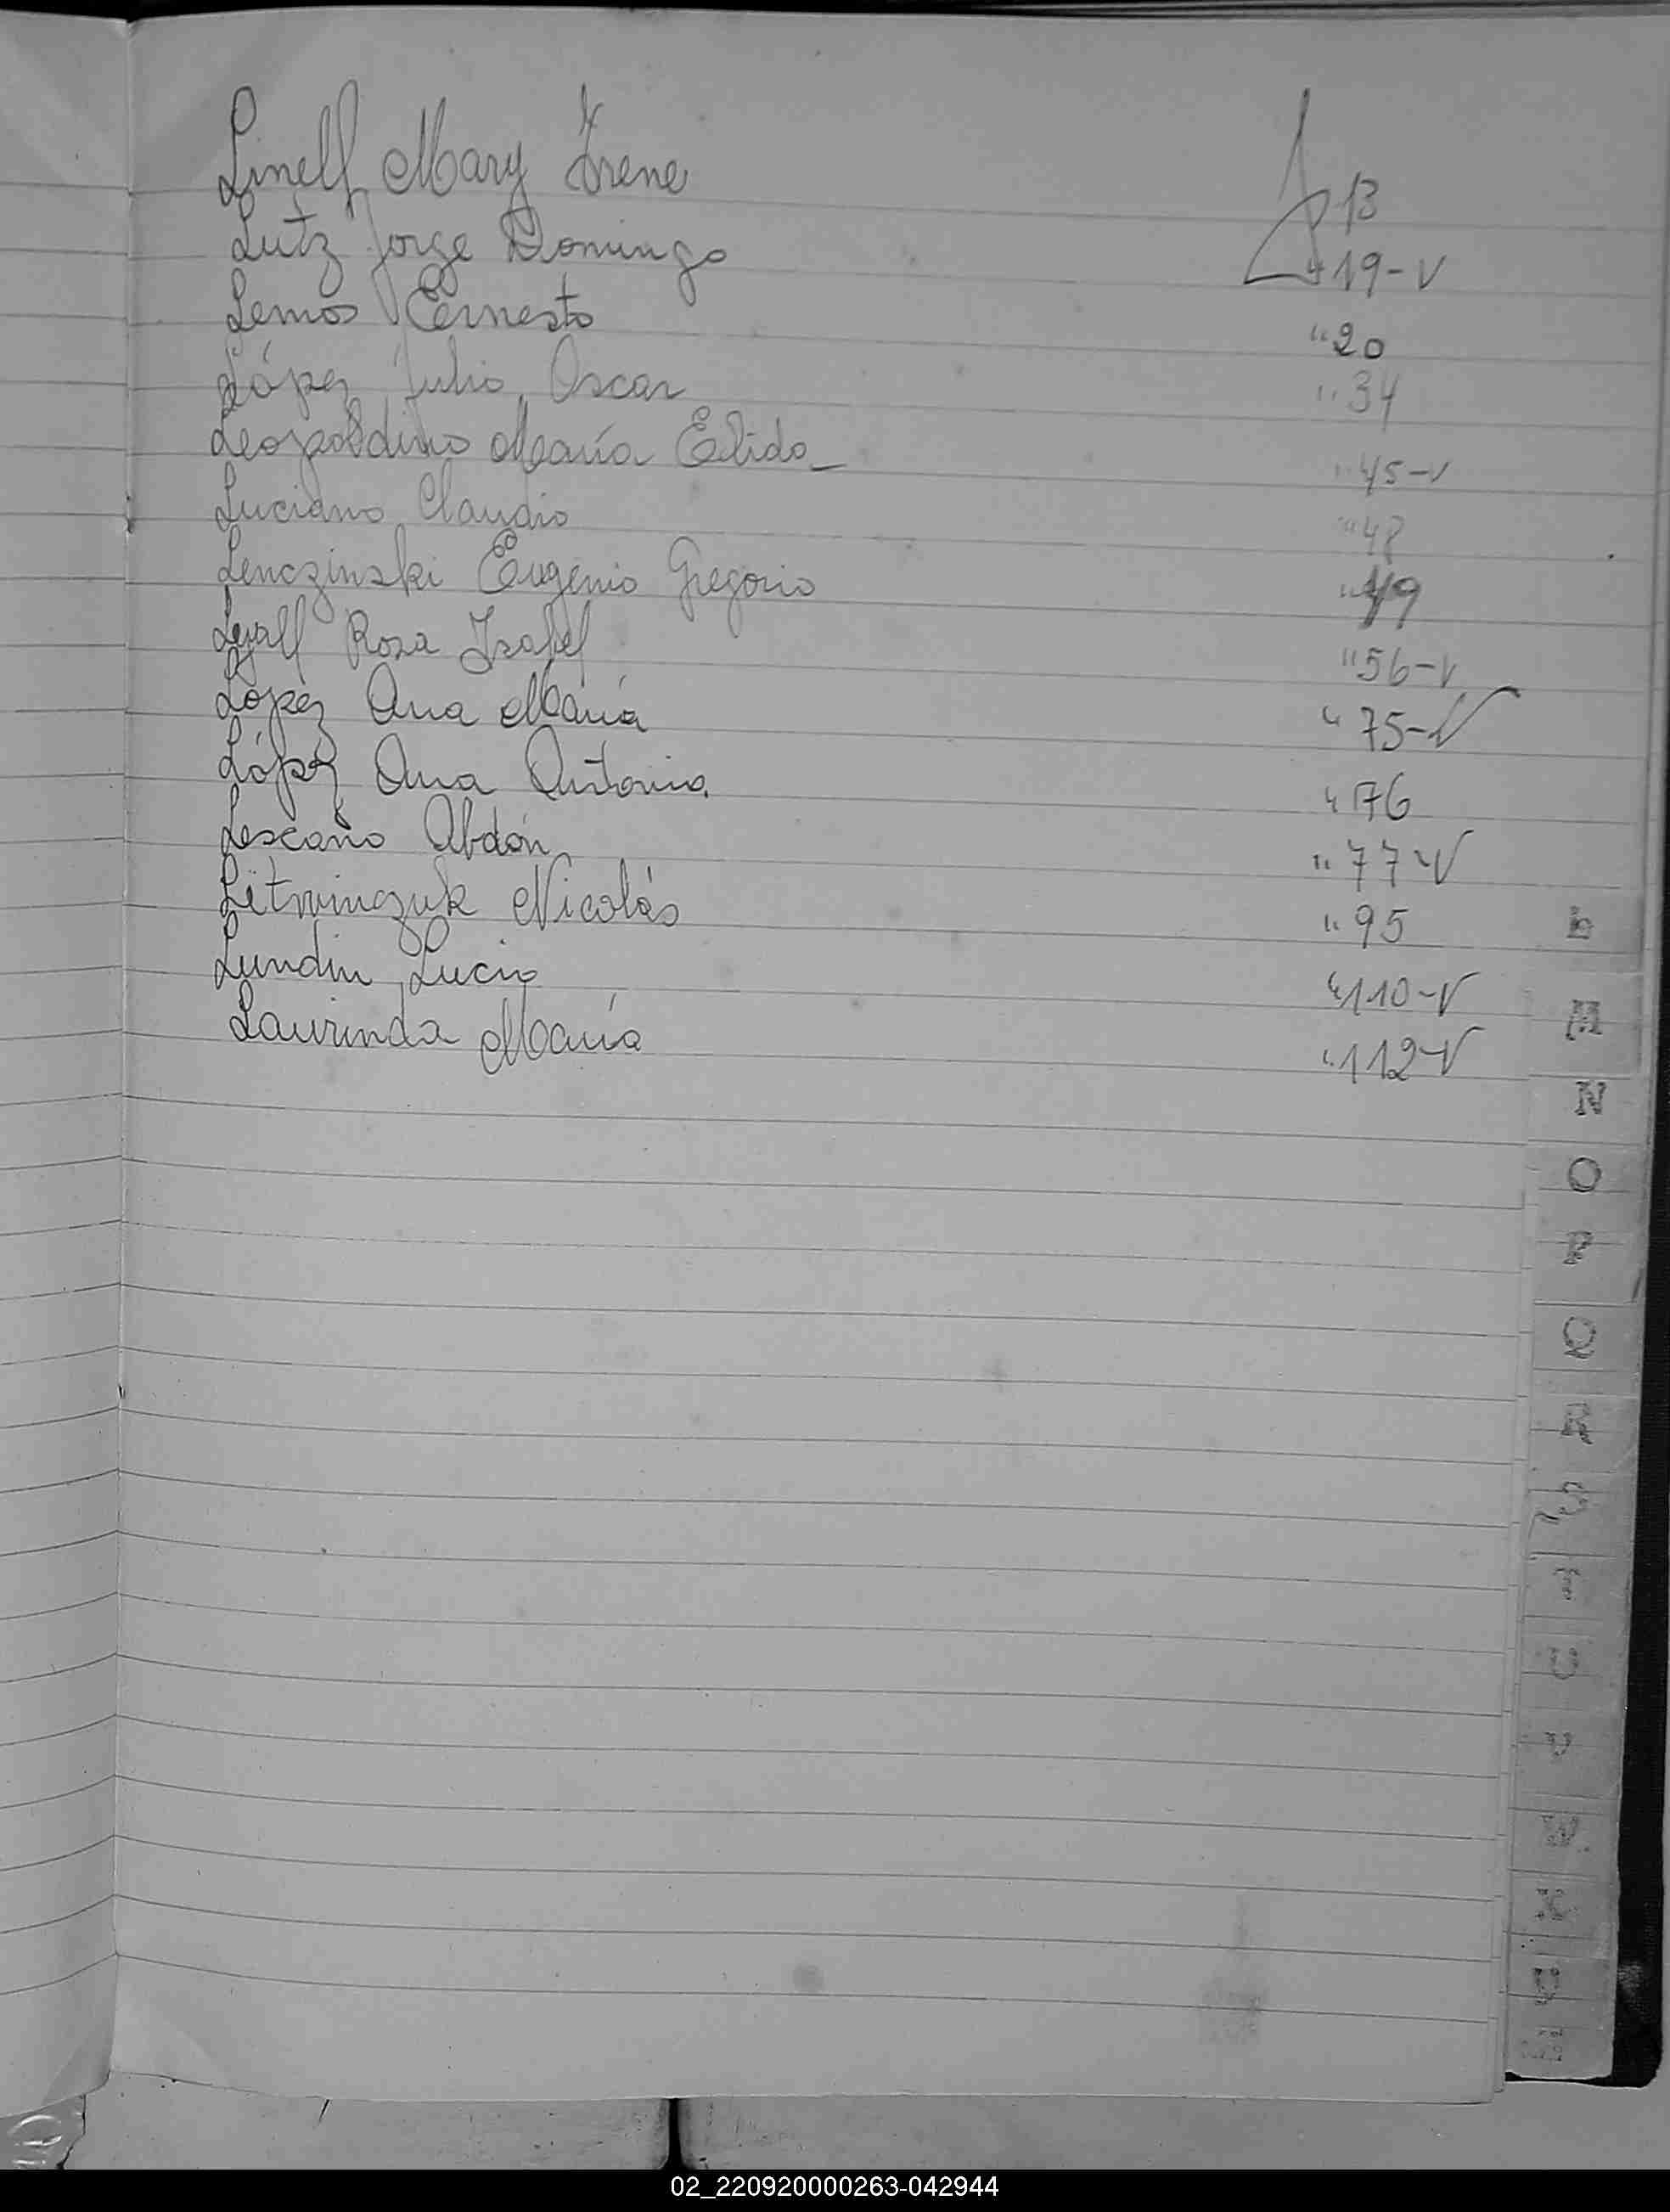 Linell Mary Irene 13
Lutz Jorge Domingo " 19-V
Lemos Ernesto " 20
López Julio Oscar " 34
Leopoldino María Elida_ " 45-V
Luciano Claudio " 48
Lenczinski Eugenio Gregorio " 49
Lyall Rosa Isabel " 56-V
López Ana María " 75-V
López Ana Antonia. " 76
Lescano Abdón " 77-V
Litwinczuk Nicolás " 95
Lundin Lucio " 110-V
Laurinda María " 112-V
L
M
N
O
P
Q
R
S
T
U
V
W
X
02_220920000263-042944